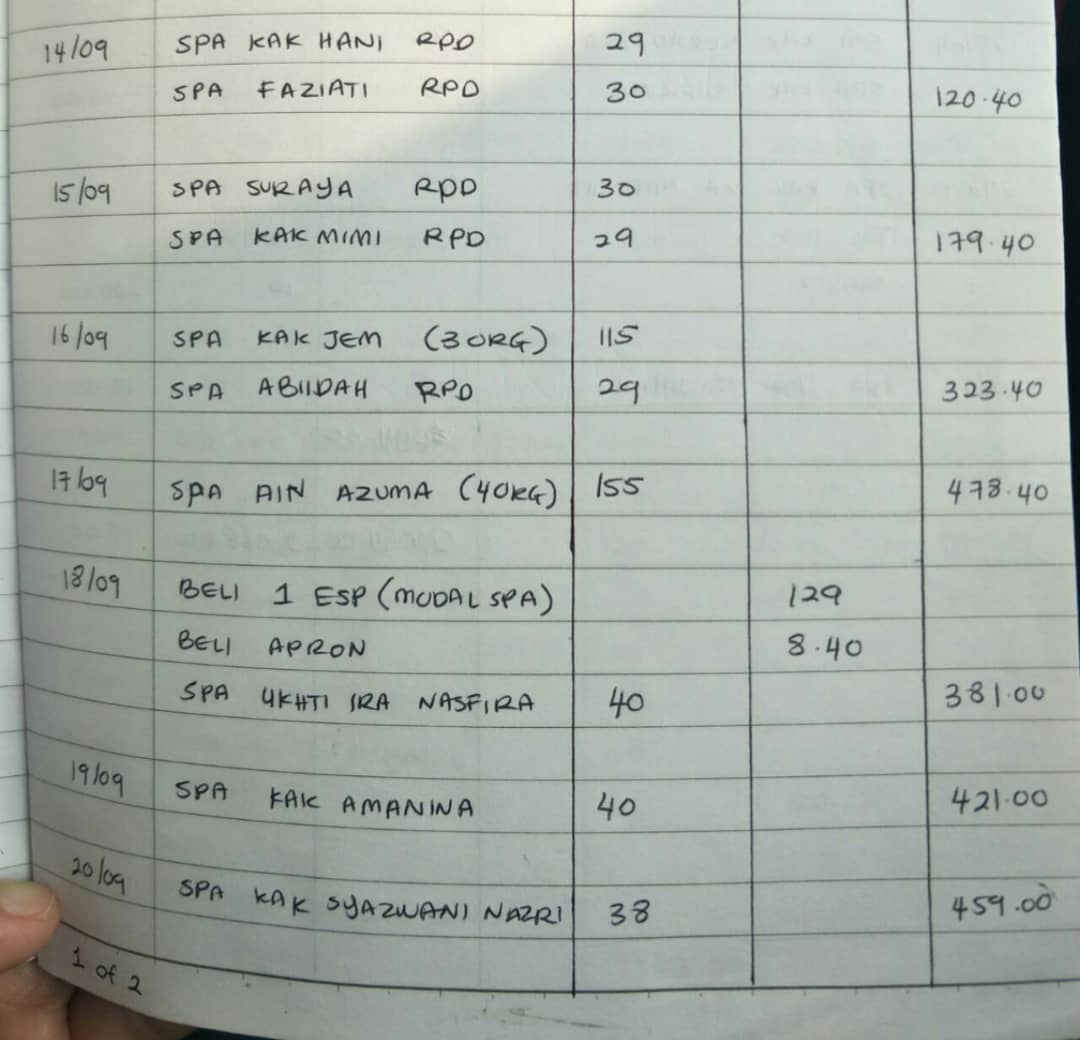 14/09 SPA KAK HANI RPD 29
SPA FAZIATI RPD 30 120.40
15/09 SPA SURAYA RPD 30
SPA KAK MIMI RPD 29 179.40
16/09 SPA KAK JEM (3 ORG) 115
SPA ABIIDAH RPD 29 323.40
17/09 SPA AIN AZUMA (4 ORG) 155 478.40
18/09 BELI 1 ESP (MODAL SPA) 129
BELI APRON 8.40
SPA UKHTI IRA NASFIRA 40 381.00
19/09 SPA KAK AMANINA 40 421.00
20/09 SPA KAK SYAZWANI NAZRI 38 459.00
1 of 2